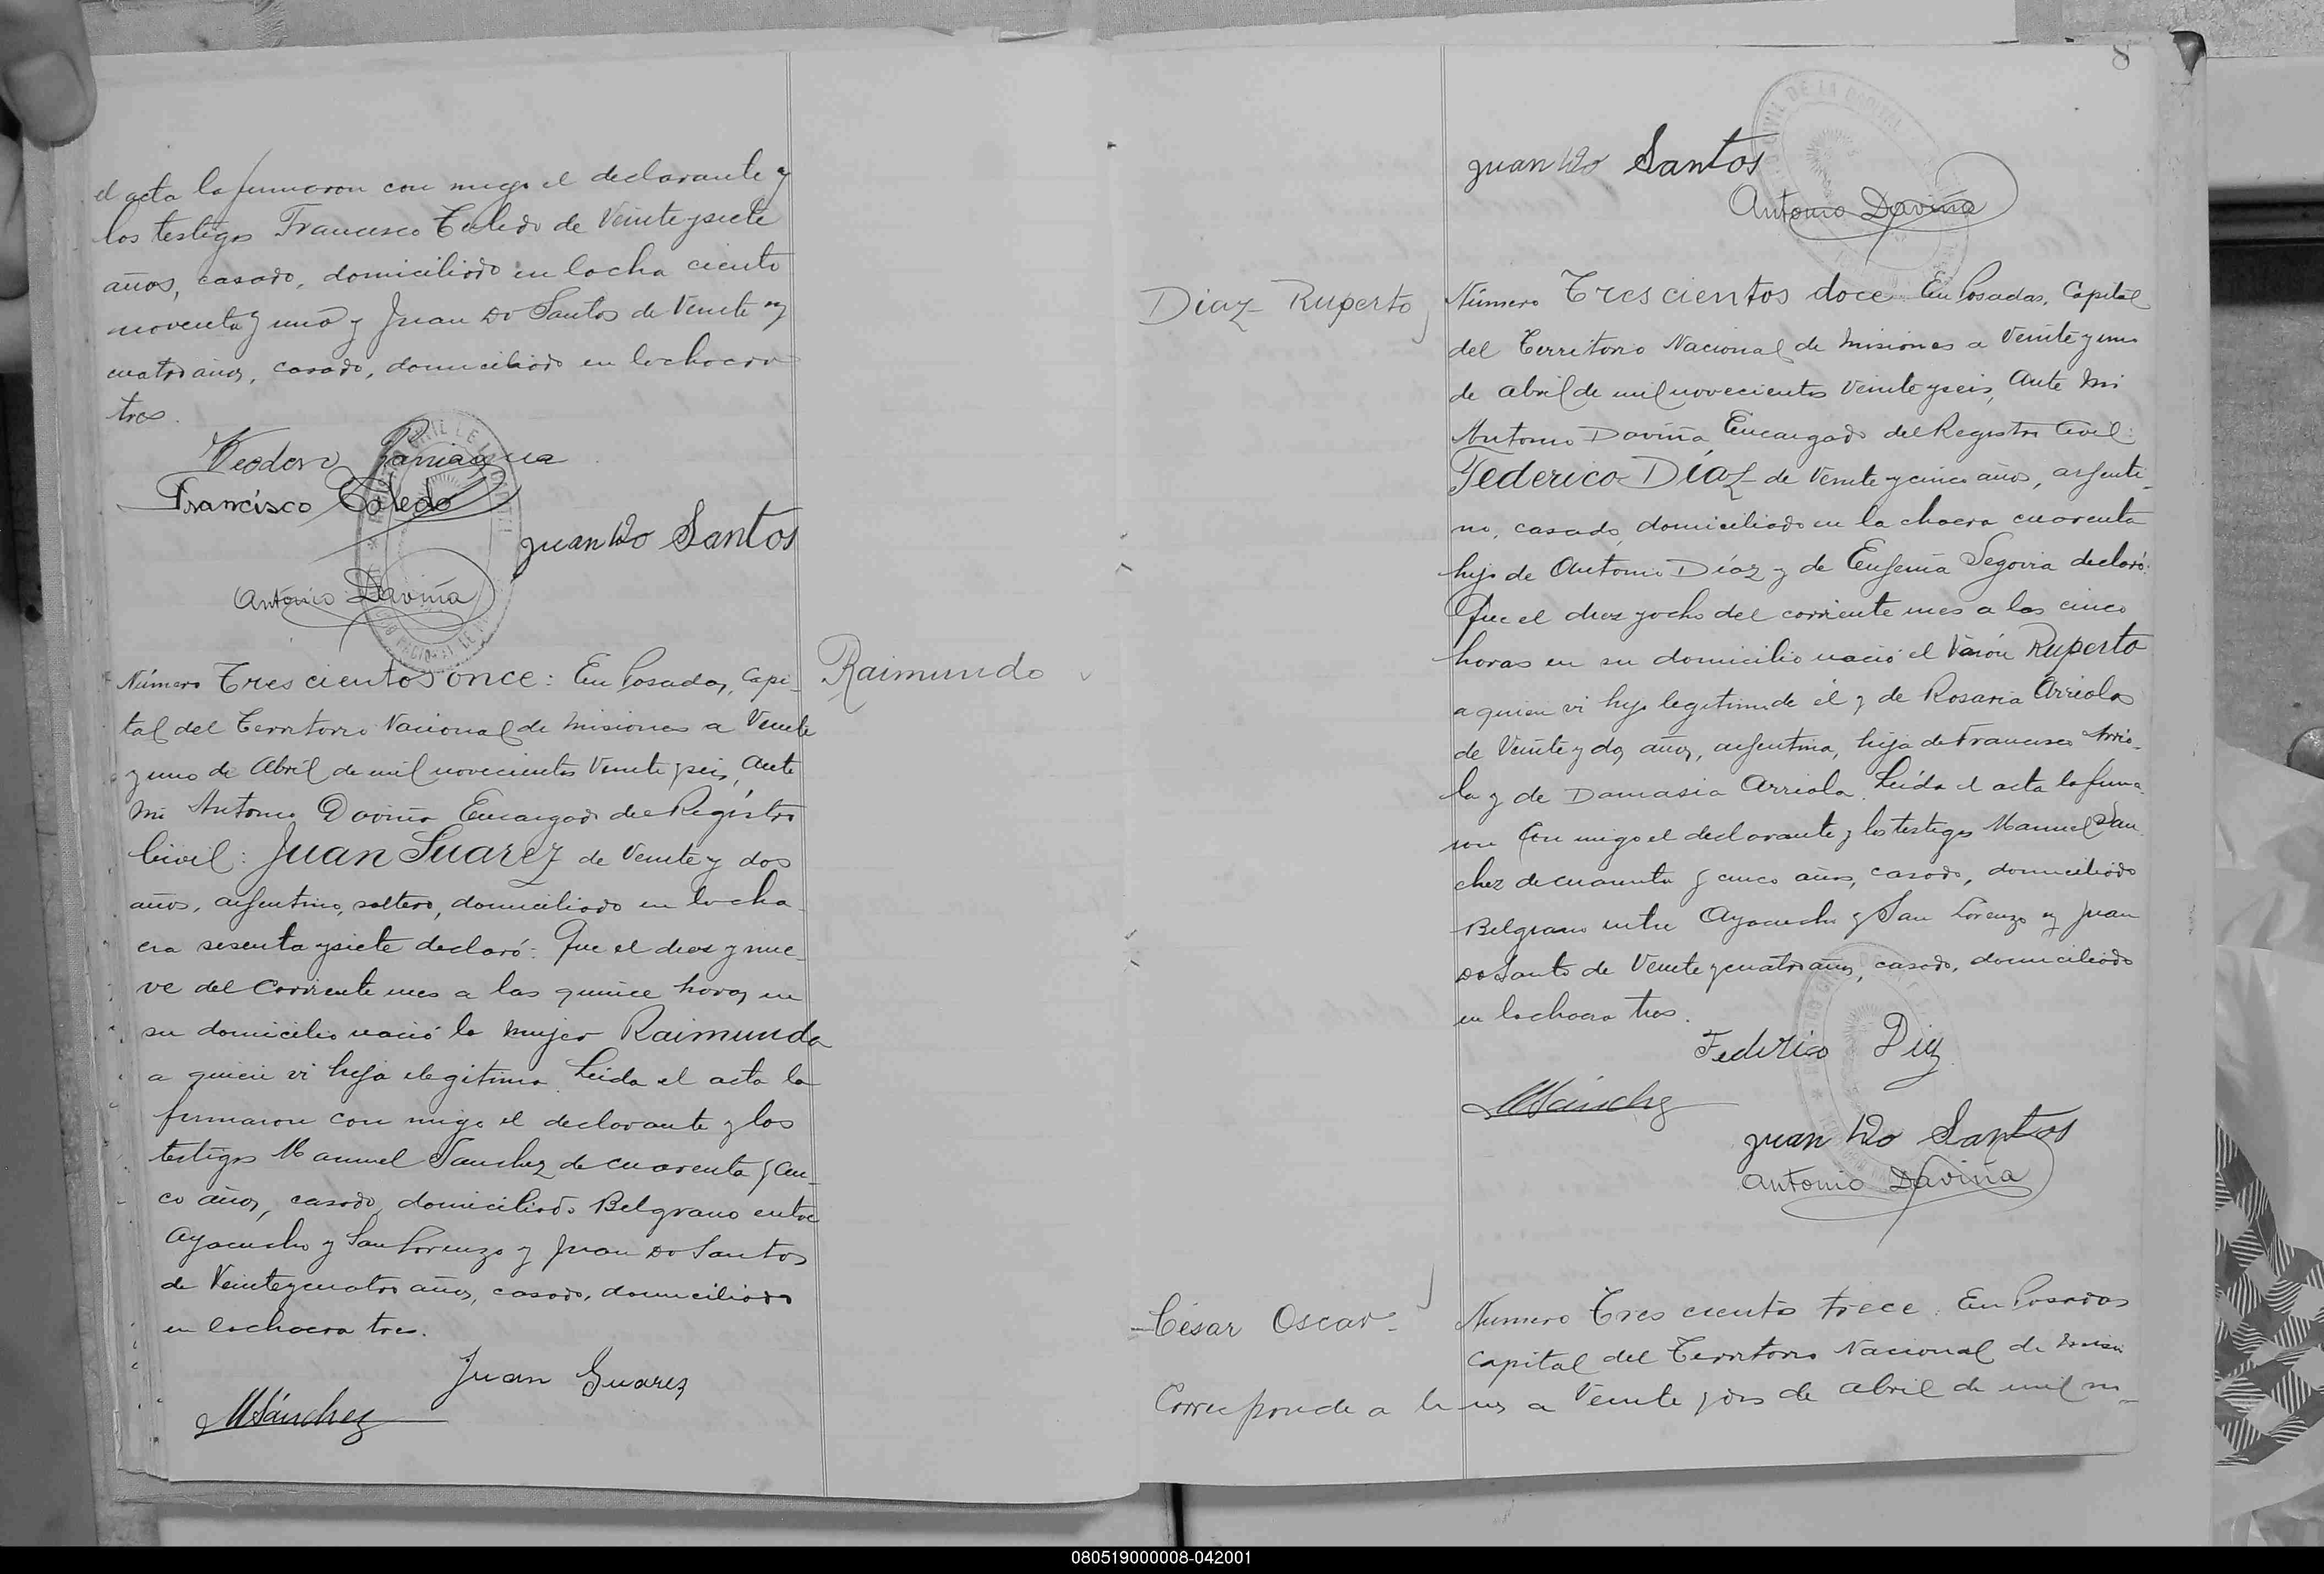 el acta la firmaron con migo el declarante y
los testigos Francisco Toledo de Veinte y siete
años, casado, domiciliado en la cha ciento
noventa y uno y Juan Do Santos de Veinte y
cuatro años, casado, domiciliado en la chacra
tres.
Francisco Toledo
Juan Do Santos
Antonio Daviña
Número Trescientos once: En Posadas, Capi-
tal del Territorio Nacional de Misiones a Veinte
y uno de Abril de mil novecientos Veinte y seis, Ante
mi Antonio Daviña Encargado del Registro
Civil: Juan Suarez de Veinte y dos
años, argentino, soltero, domiciliado en la cha-
cra sesenta y siete declaró: Que el diez y nue-
ve del Corriente mes a las quince horas en
su domicilio nació la mujer Raimunda
a quien vi hija ilegitima. Leida el acta la
firmaron con migo el declarante y los
testigos Manuel Sanchez de cuarenta y cin-
co años, casado, domiciliado Belgrano entre
Ayacucho y San Lorenzo y Juan Do Santos
de Veinte y cuatro años, casado, domiciliado
en la chacra tres.
Juan Suarez
MSánchez
Raimundo
8
Juan Do Santos
Antonio Daviña
Diaz Ruperto
Número Trescientos doce En Posadas, Capital
del Territorio Nacional de Misiones a Veinte y uno
de abril de mil novecientos Veinte y seis, Ante mi
Antonio Daviña Encargado del Registro Civil:
Federico Díaz de Veinte y cinco años, argenti-
no, casado, domiciliado en la chacra cuarenta
hijo de Antonio Díaz y de Eugenia Segovia declaró:
Que el diez y ocho del corriente mes a las cinco
horas en su domicilio nació el Varón Ruperto
a quien vi hijo legitimo de él y de Rosaria Arriola
de Veinte y dos años, argentina, hija de Francisco Arrio-
la y de Damasia Arriola. Leída el acta la firma-
ron Con migo el declarante y los testigos Manuel San
chez de cuarenta y cinco años, casado, domiciliado
Belgrano entre Ayacucho y San Lorenzo y Juan
Do Santo de Veinte y cuatro años, casado, domiciliado
en la chacra tres.
Federico Diz
MSánchez
Juan Do Santos
Antonio Daviña
César Oscar-
Numero Tres ciento trece. En Posadas
Capital del Territorio Nacional de
Corresponde a a Veinte y dos de abril de mil no-
080519000008-042001